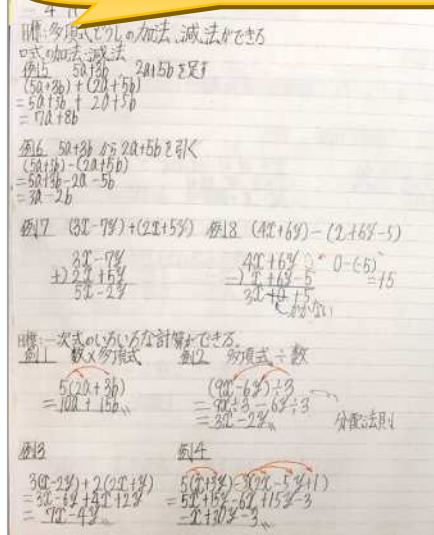 目標:多項式どうしの加法、減法ができる
□式の加法、減法
例5 5a+3b 2a+5b を足す
(5a+3b)+(2a+5b)
=5a+3b+2a+5b
=7a+8b
例6 5a+3b から 2a+5b を引く
(5a+3b)-(2a+5b)
=5a+3b-2a-5b
=3a-2b
例7 (3x-7y)+(2x+5y) 例8 (4x+6y)-(x+6y-5)
3x-7y
+)2x+5y
5x-2y
4x+6y 0
-)x+6y-5
3x+0+5
0-(-5)
=+5
かかない
目標:一次式のいろいろな計算ができる。
例1 数×多項式 例2 多項式÷数
5(2a+3b)
=10a+15b
(9x-6y)÷3
=9x÷3-6y÷3
=3x-2y
分配法則
例3 例4
3(x-2y)+2(2x+y)
=3x-6y+4x+2y
=7x-4y
5(x+3y)-3(2x-5y+1)
=5x+15y-6x+15y-3
-x+30y-3